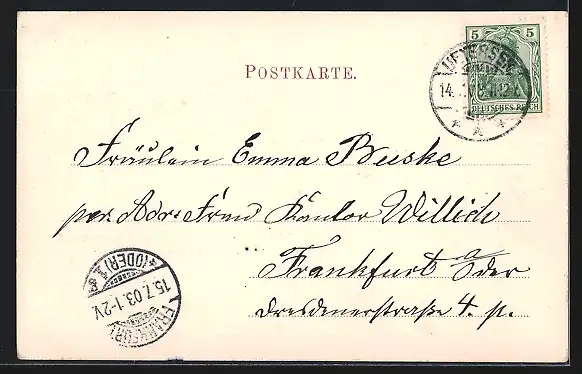 5 5
DEUTSCHES REICH
POSTKARTE.
14.
Fräulein Emma Buske
per Adr: Frau Kantor Willich
Frankfurt a/Oder
Dresdenerstraße 4. p.
FRANKFURT
(ODER) 1
15.7.03.1-2V.